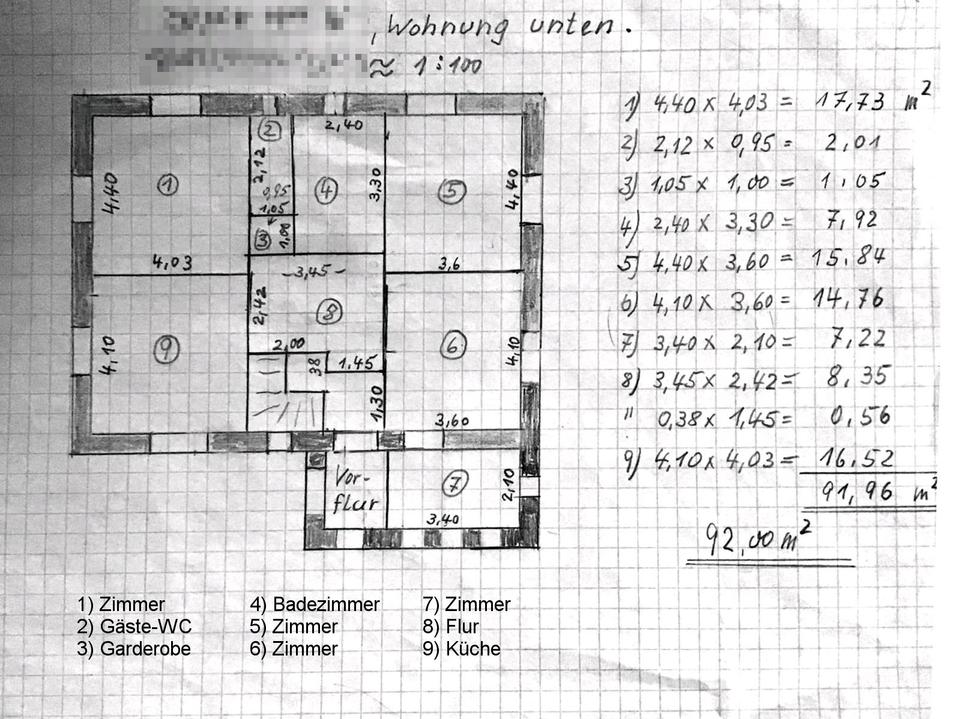 , Wohnung unten.
≈ 1:100
1) 4,40 x 4,03 = 17,73 m²
2) 2,12 x 0,95 = 2,01
3) 1,05 x 1,00 = 1,05
4) 2,40 x 3,30 = 7,92
5) 4,40 x 3,60 = 15,84
6) 4,10 x 3,60 = 14,76
7) 3,40 x 2,10 = 7,22
8) 3,45 x 2,42 = 8,35
" 0,38 x 1,45 = 0,56
9) 4,10 x 4,03 = 16,52
91,96 m²
92,00 m²
2
2,40
2,12
1
4,40
0,95
4
3,30
5
4,40
1,05
3
1,00
4,03
3,45
3,6
2,42
8
9
4,10
2,00
38
1,45
6
4,10
1,30
3,60
Vor-
flur
7
2,10
3,40
1) Zimmer 4) Badezimmer 7) Zimmer
2) Gäste-WC 5) Zimmer 8) Flur
3) Garderobe 6) Zimmer 9) Küche